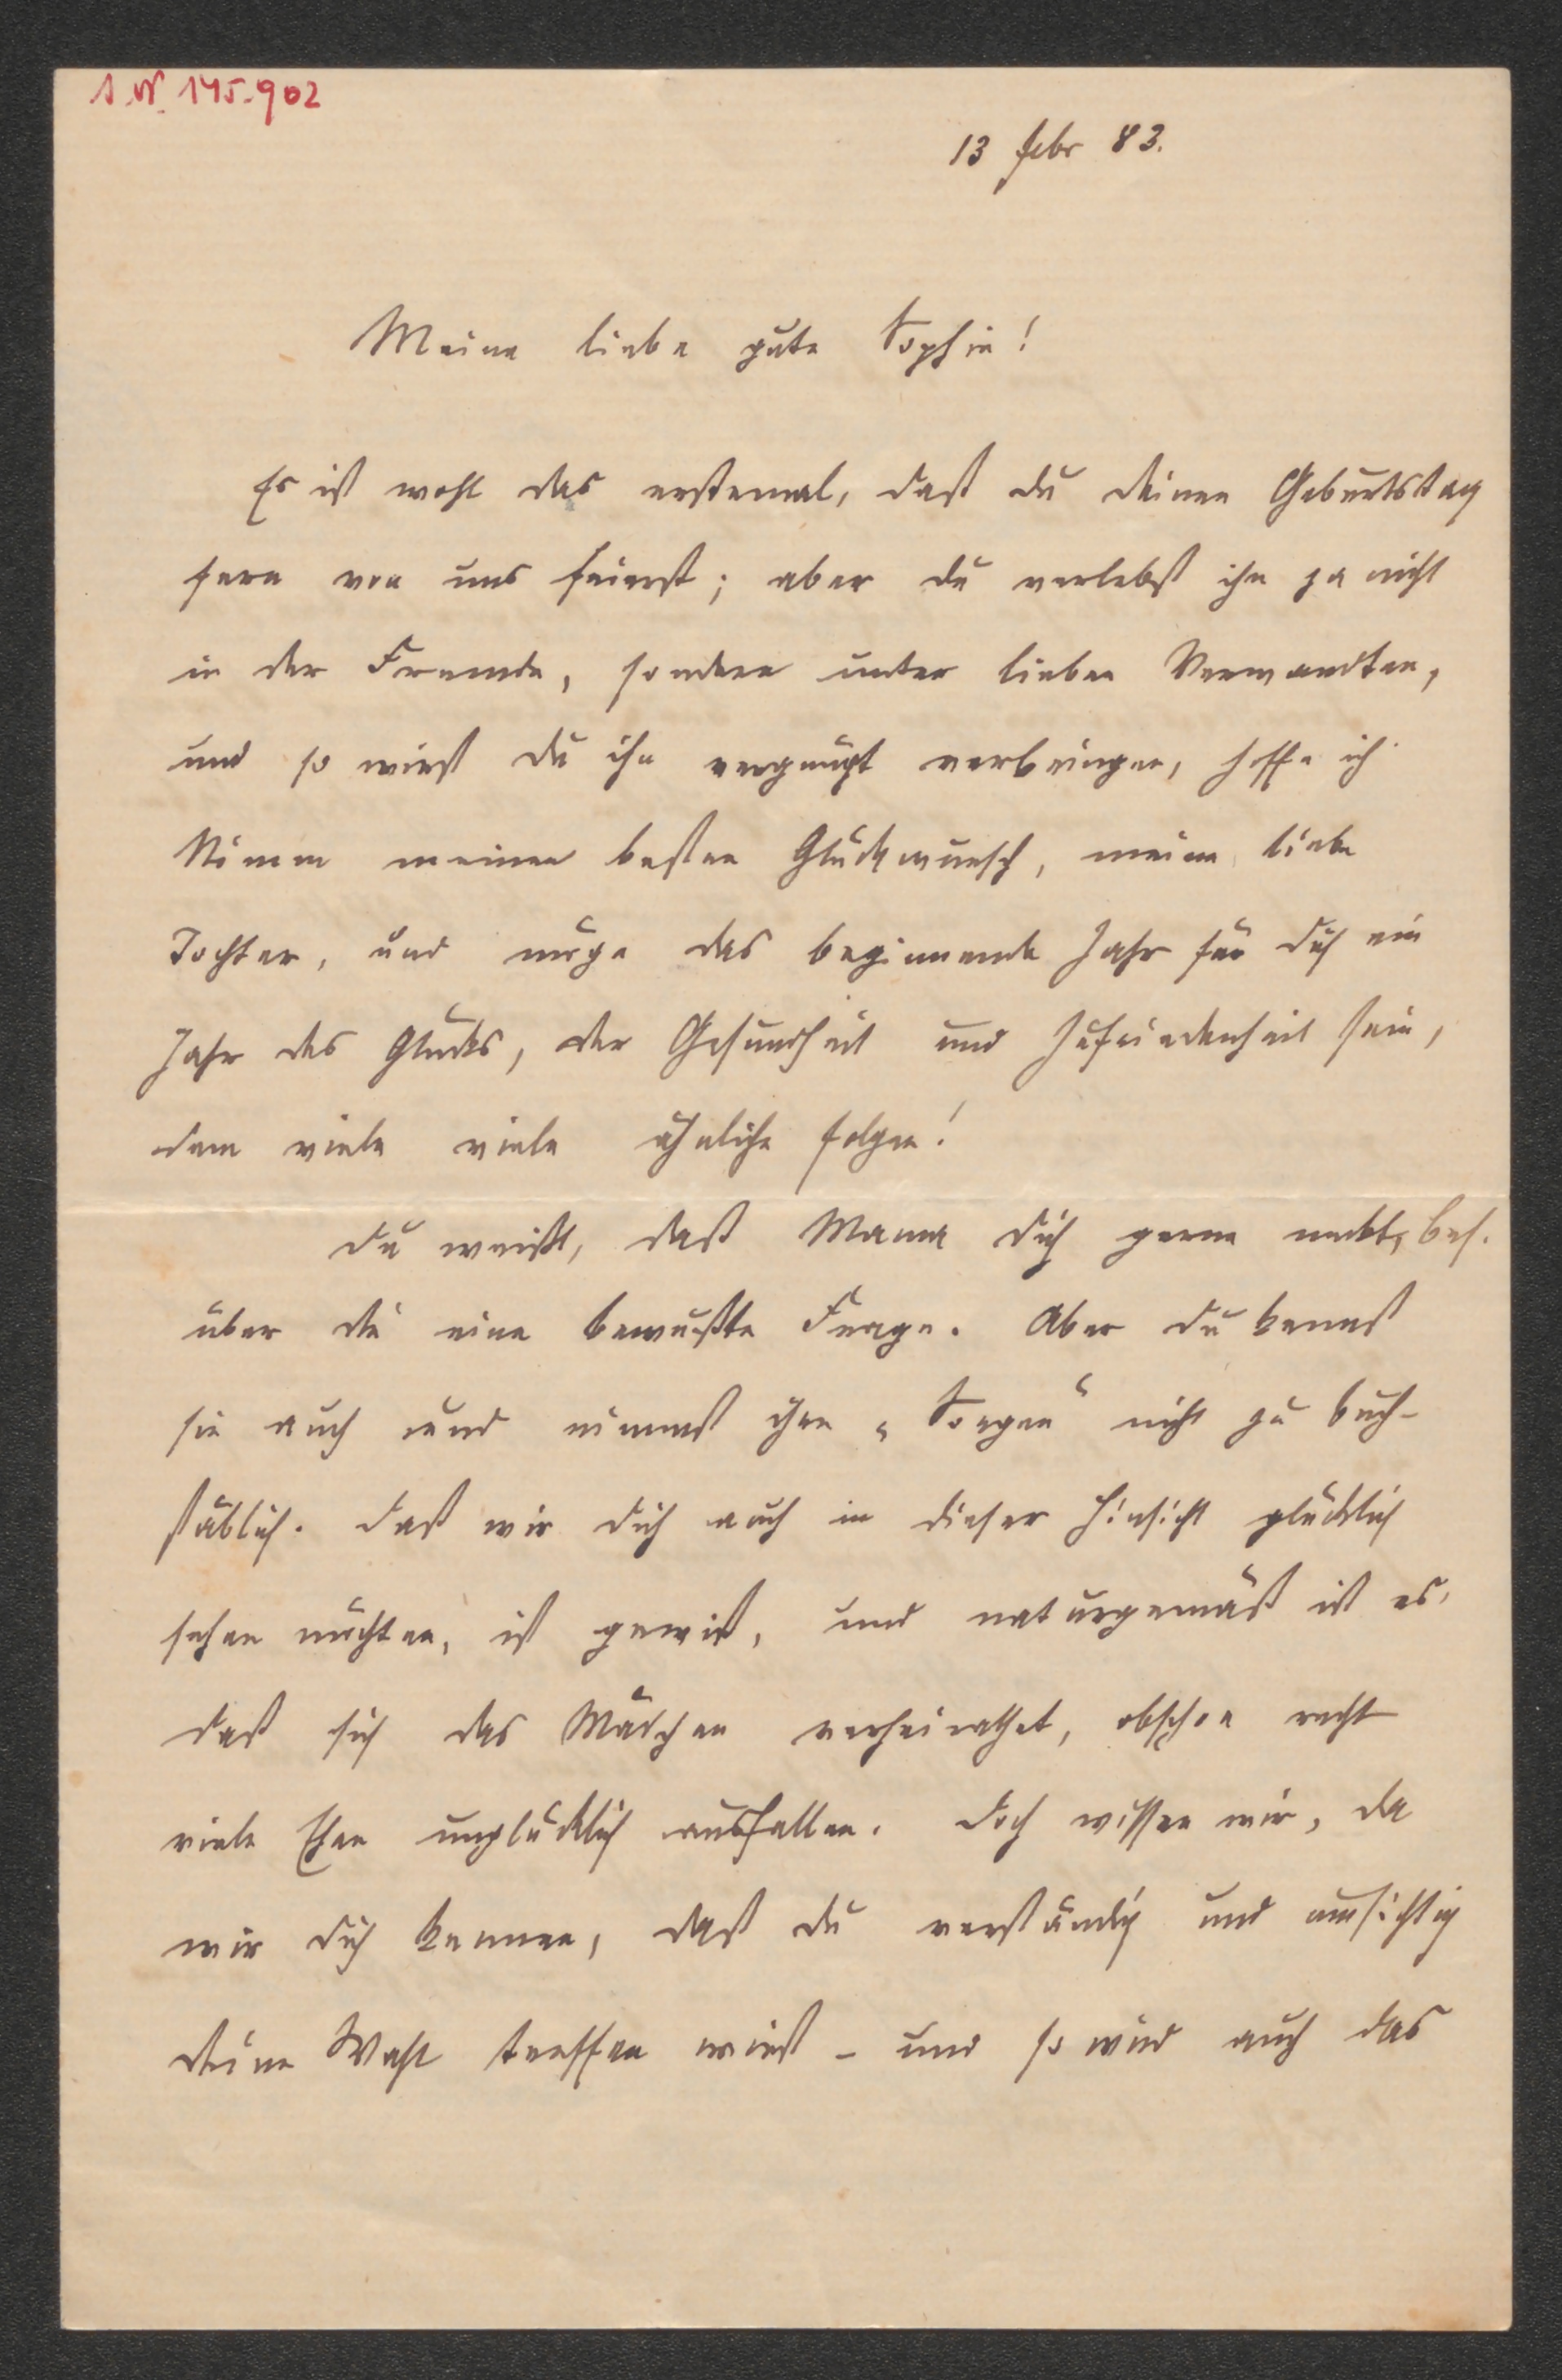 I.N. 145.902
13 Febr 83.
Meine liebe gute Sophie!
Es ist wohl das erstemal, daß du deinen Geburtstag
fern von uns feierst; aber du verlebst ihn ja nicht
in der Fremde, sondern unter lieben Verwandten,
und so wirst du ihn vergnügt verbringen, hoffe ich.
Nimm meinen besten Glückwunsch, meine liebe
Tochter, und möge das beginnende Jahr für dich ein
Jahr des Glücks, der Gesundheit und Zufriedenheit sein,
dem viele viele ähnliche folgen!
Du weißt, daß Mama dich gerne neckt, bes.
über die eine bewußte Frage. Aber du kennst
sie auch und nimmst ihre „Sorgen“ nicht zu buch-
stäblich. Daß wir dich auch in dieser Hinsicht glücklich
sehen möchten, ist gewiß, und naturgemäß ist es,
daß sich das Mädchen verheirathet, obschon recht
viele Ehen unglücklich ausfallen. Doch wissen wir, da
wir dich kennen, daß du verständig und umsichtig
deine Wahl treffen wirst – und so wird auch das